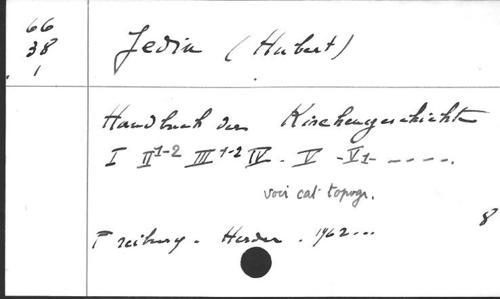 66
38
1
Jedin (Hubert)
Handbuch der Kirchengeschichte
I II1-2 III1-2 IV - V - VI - - - - -.
voir cat. topogr.
8
Freiburg - Herder - 1962...